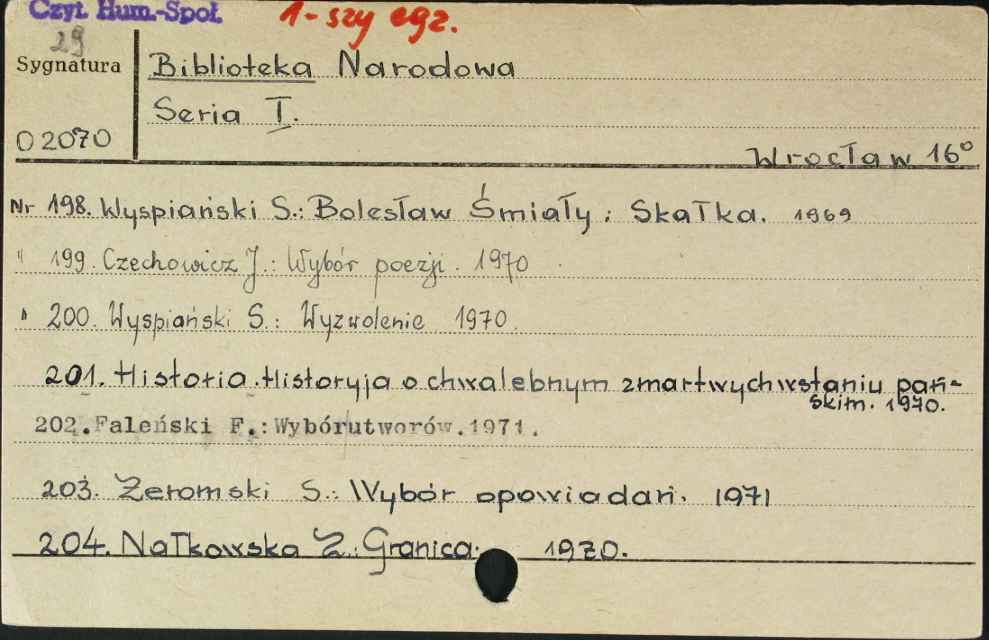 Czyt. Hum.-Społ.
1-szy egz.
29
Sygnatura
O 2070
Biblioteka Narodowa
Seria I.
Wrocław 16°
Nr 198. Wyspiański S.: Bolesław Śmiały; Skałka. 1969
" 199. Czechowicz J.: Wybór poezji. 1970
" 200. Wyspiański S.: Wyzwolenie 1970.
201. Historia. Historyja o chwalebnym zmartwychwstaniu pań-
skim. 1970.
202. Faleński F.: Wybórutworów. 1971.
203. Żeromski S.: Wybór opowiadań. 1971
204. Nałkowska Z.: Granica. 1970.